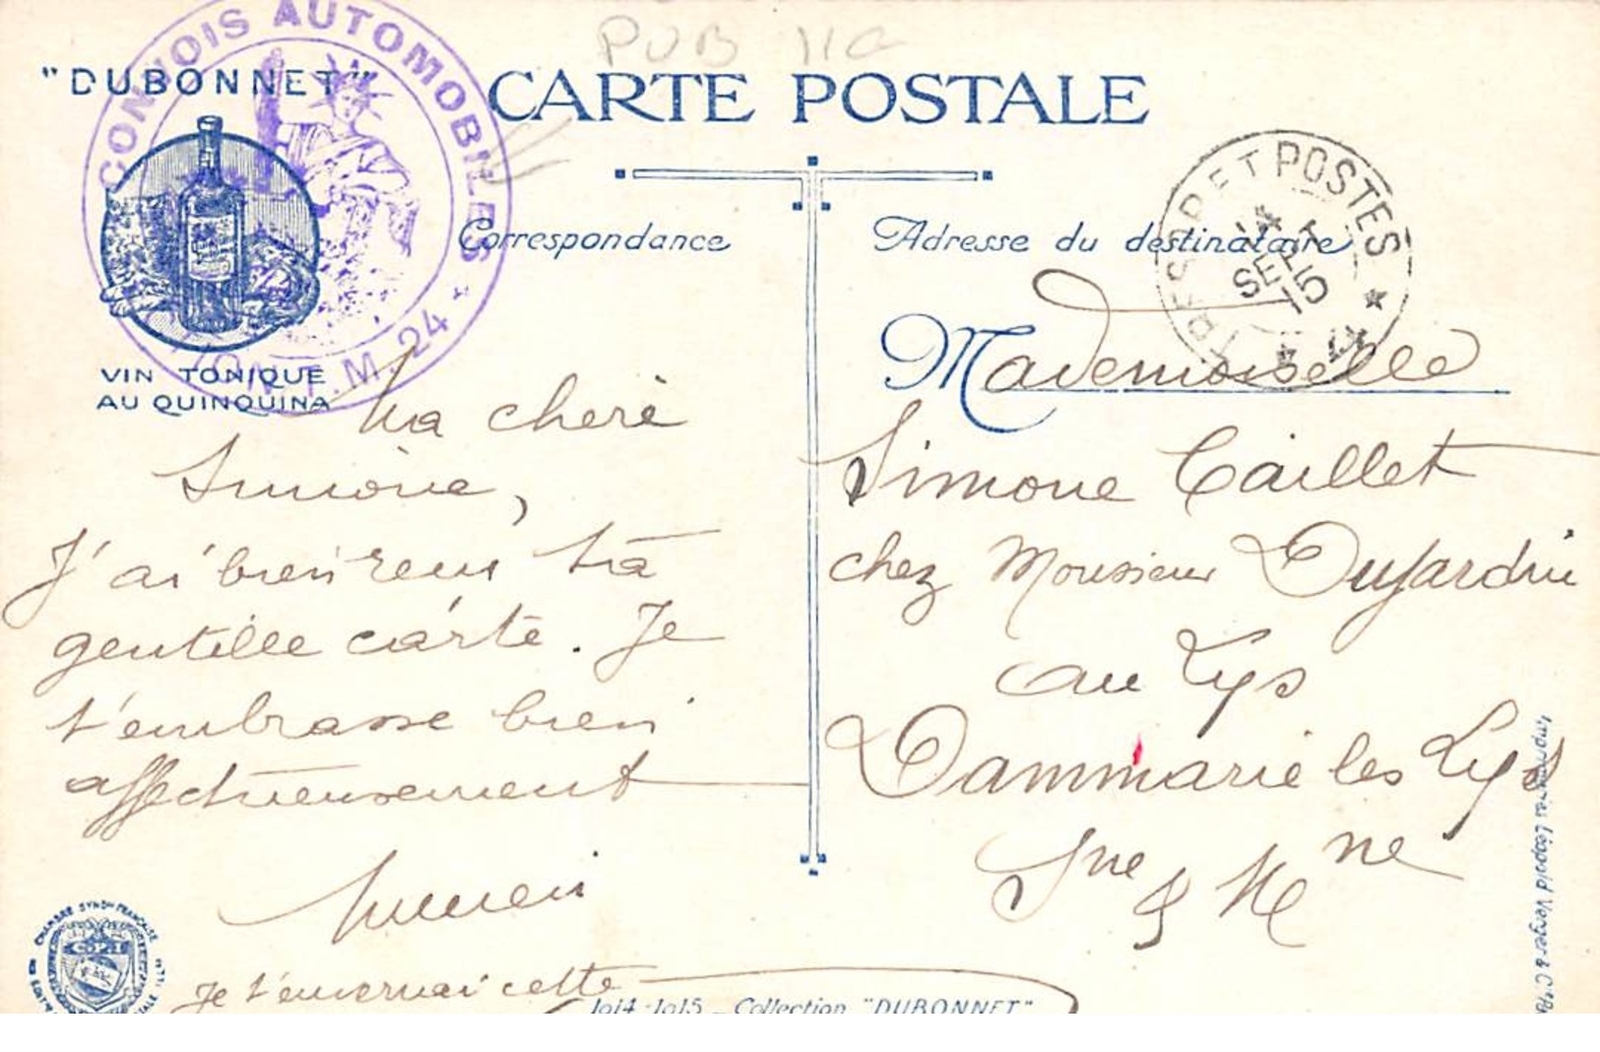 PUB 110
"DUBONNET"
CONVOIS AUTOMOBILES *
T.M. 24
CARTE POSTALE
VIN TONIQUE
AU QUINQUINA
Correspondance
Adresse du destinataire
TRESOR ET POSTES
14
SEPT
15
Ma cherè
Simone,
J'ai bien recu ta
gentille carte. Je
t'embrasse bien
affectueusement
Je t'enverrai cette
Mademoiselle
Simone Caillet
chez Monsieur Dujardin
au Lys
Dammarie les Lys
Sne & Mne
CHAMBRE SYND^le FRANÇAISE
1914-1915 _ Collection "DUBONNET"
Imprimeries Léopold Verger & Cie